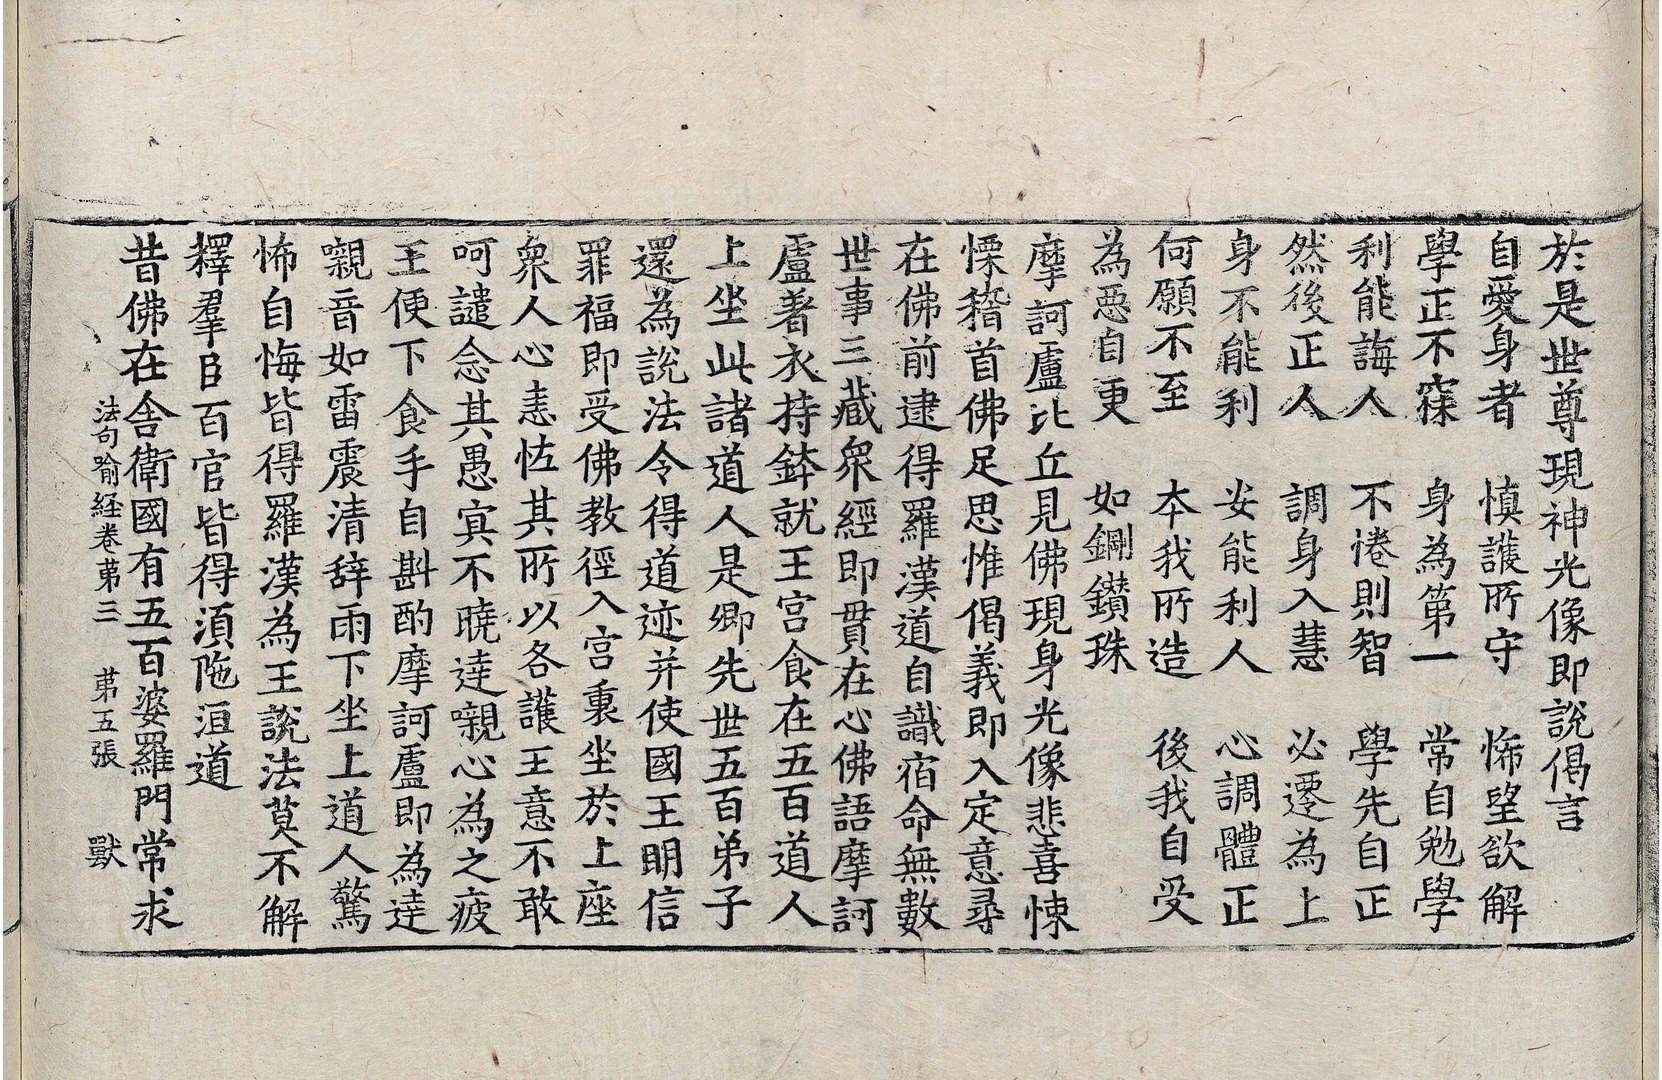 於是世尊現神光像即說偈言
自愛身者　慎護所守　悕望欲解
學正不寐　身為第一　常自勉學
利能誨人　不惓則智　學先自正
然後正人　調身入慧　必遷為上
身不能利　安能利人　心調體正
何願不至　本我所造　後我自受
為惡自更　如鋼鑽珠
摩訶盧比丘見佛現身光像悲喜悚
慄稽首佛足思惟偈義即入定意尋
在佛前逮得羅漢道自識宿命無數
世事三藏衆經即貫在心佛語摩訶
盧著衣持鉢就王宮食在五百道人
上坐此諸道人是卿先世五百弟子
還為說法令得道迹并使國王明信
罪福即受佛教徑入宮裏坐於上座
衆人心恚怪其所以各護王意不敢
呵譴念其愚寘不曉達嚫心為之疲
王便下食手自斟酌摩訶盧即為達
嚫音如雷震清辞雨下坐上道人驚
怖自悔皆得羅漢為王說法莫不解
釋羣臣百官皆得湏陁洹道
昔佛在舍衛國有五百婆羅門常求
法句喻経卷苐三　苐五張　獸